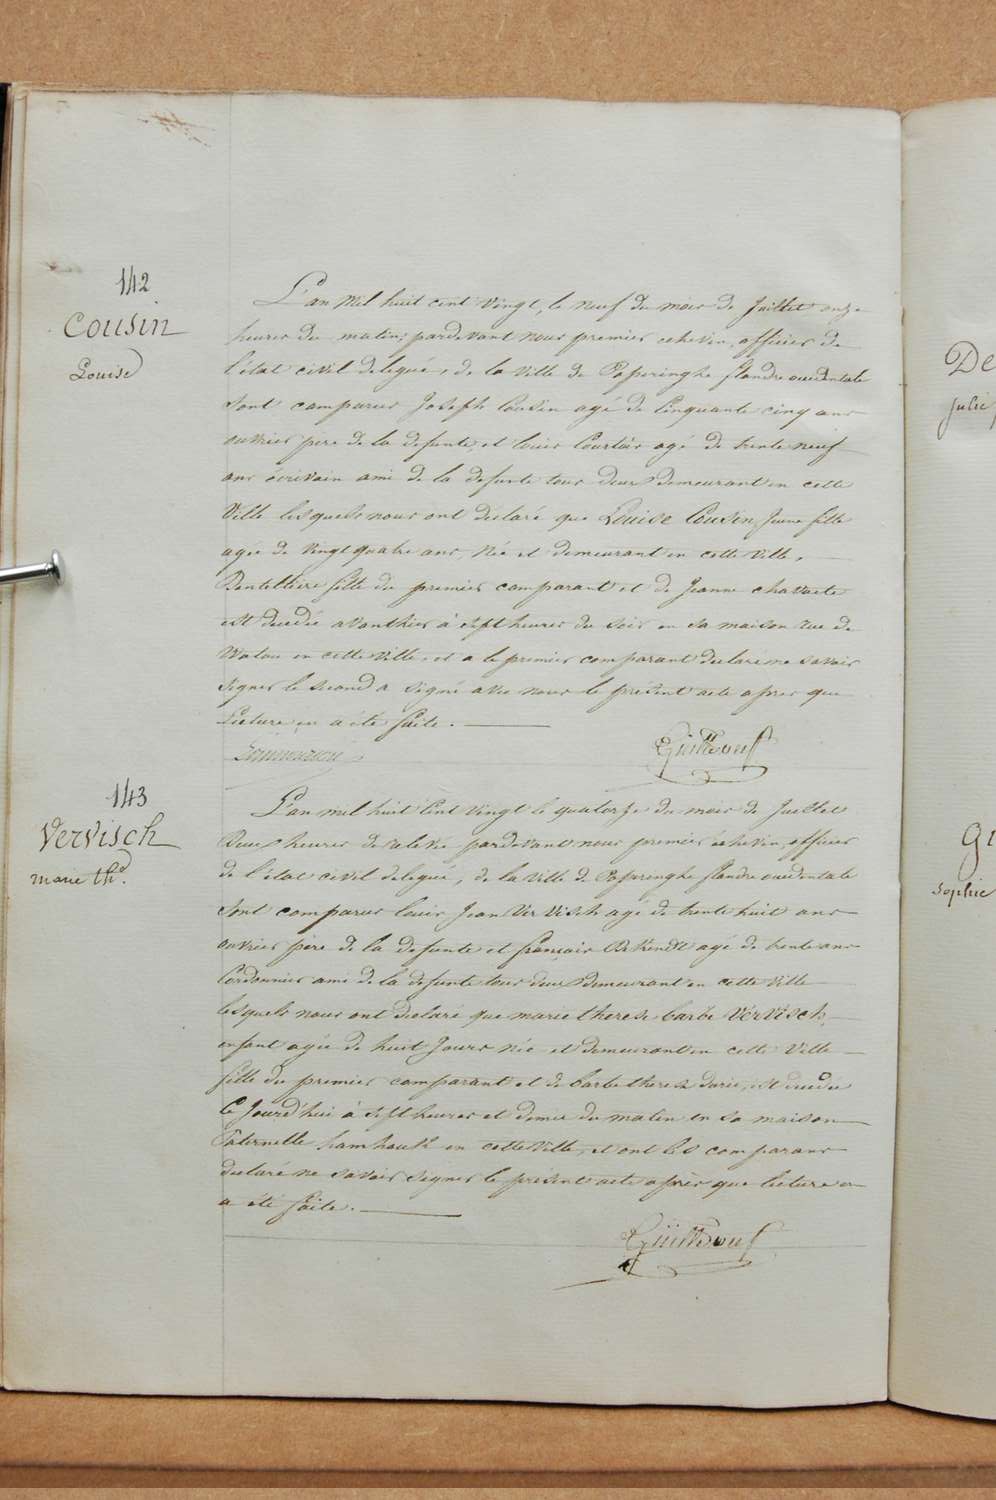 142
Cousin
Louise
L'an Mil huit cent vingt, le neuf du mois de Juillet onze
heures du matin, pardevant nous premier echevin, officier de
l'état civil delegué, de la ville de Poperinghe flandre occidentale
sont comparus Joseph Cousin agé de Cinquante cinq ans
ouvrier pere de la defunte, et louis agé de trente neuf
ans écrivain ami de la defunte tous deux demeurant en cette
Ville lesquels nous ont déclaré que Louise Cousin, Jeune fille
agée de Vingt quatre ans Née et demeurant en cette ville,
Dentelliere fille du premier comparant et de Jeanne
est decedée avanthier à sept heures du soir en sa maison rue de
Watou en cette Ville, et a le premier comparant declaré ne savoir
signer le second a signé avec nous le présent acte apres que
Lecture en a été faite.
143
Vervisch
marie th.e
L'an mil huit Cent vingt le quatorze du mois de Juillet
Deux heures de relevée pardevant nous premier échevin, officier
de l'état civil delegué, de la Ville de Poperinghe flandre occidentale
sont comparus louis Jean Ver Visch agé de trente huit ans
ouvrier père de la defunte et françois agé de trente ans
Cordonnier ami de la defunte tous deux demeurant en cette Ville
lesquels nous ont declaré que marie therese barbe Vervisch,
enfant agée de huit Jours Née et demeurant en cette Ville
fille du premier comparant et de barbe therese, est decedée
Ce Jourd'hui à sept heures et demie du matin en sa maison
Paternelle en cette Ville, et ont les comparans
declaré ne savoir signer le présent acte après que lecture en
a été faite.
De
Julie
sophie